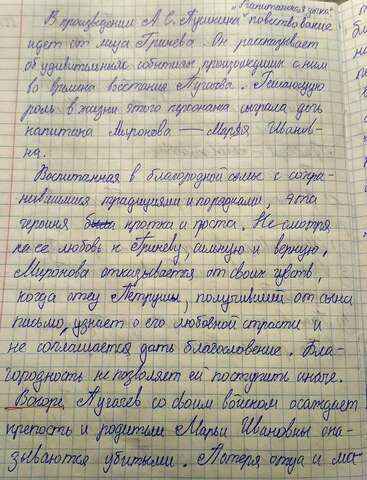 „Капитанская дочка"
В произведении А. С. Пушкина повествование
идет от лица Гринева. Он рассказывает
об удивительных событиях, произошедших с ним
во времена восстания Пугачева. Решающую
роль в жизни этого персонажа сыграла дочь
капитана Миронова — Марья Иванов-
на.
Воспитанная в благородной семье с сохра-
нившимися традициями и порядками, эта
героиня была кротка и проста. Не смотря
на её любовь к Гриневу, сильную и верную,
Миронова отказывается от своих чувств,
когда отец Петруши, получивший от сына
письмо, узнает о его любовной страсти и
не соглашается дать благословение. Бла-
городность не позволяет ей поступить иначе.
Вскоре Пугачев со своим войском осаждает
крепость и родители Марьи Ивановны ока-
зываются убитыми. Потеря отца и ма-